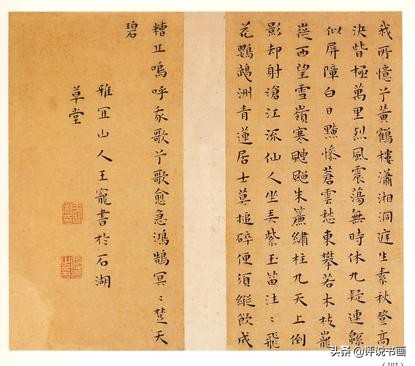 我所憶兮黃鶴樓瀟湘洞庭生素秋登高
決眥極萬里烈風震蕩無時休九疑連綿
似屏障白日黯慘蒼雲愁東攀若木枝巃
嵸西望雪嶺寒颼飀朱簾繡柱九天上倒
影却射滄江流仙人坐弄紫玉笛泠泠飛
花鸚鵡洲青蓮居士莫槌碎便須縱飲成
糟丘嗚呼我歌兮歌愈急鴻鵠冥冥楚天
碧
雅宜山人王寵書於石湖
草堂
头条 @评说书画